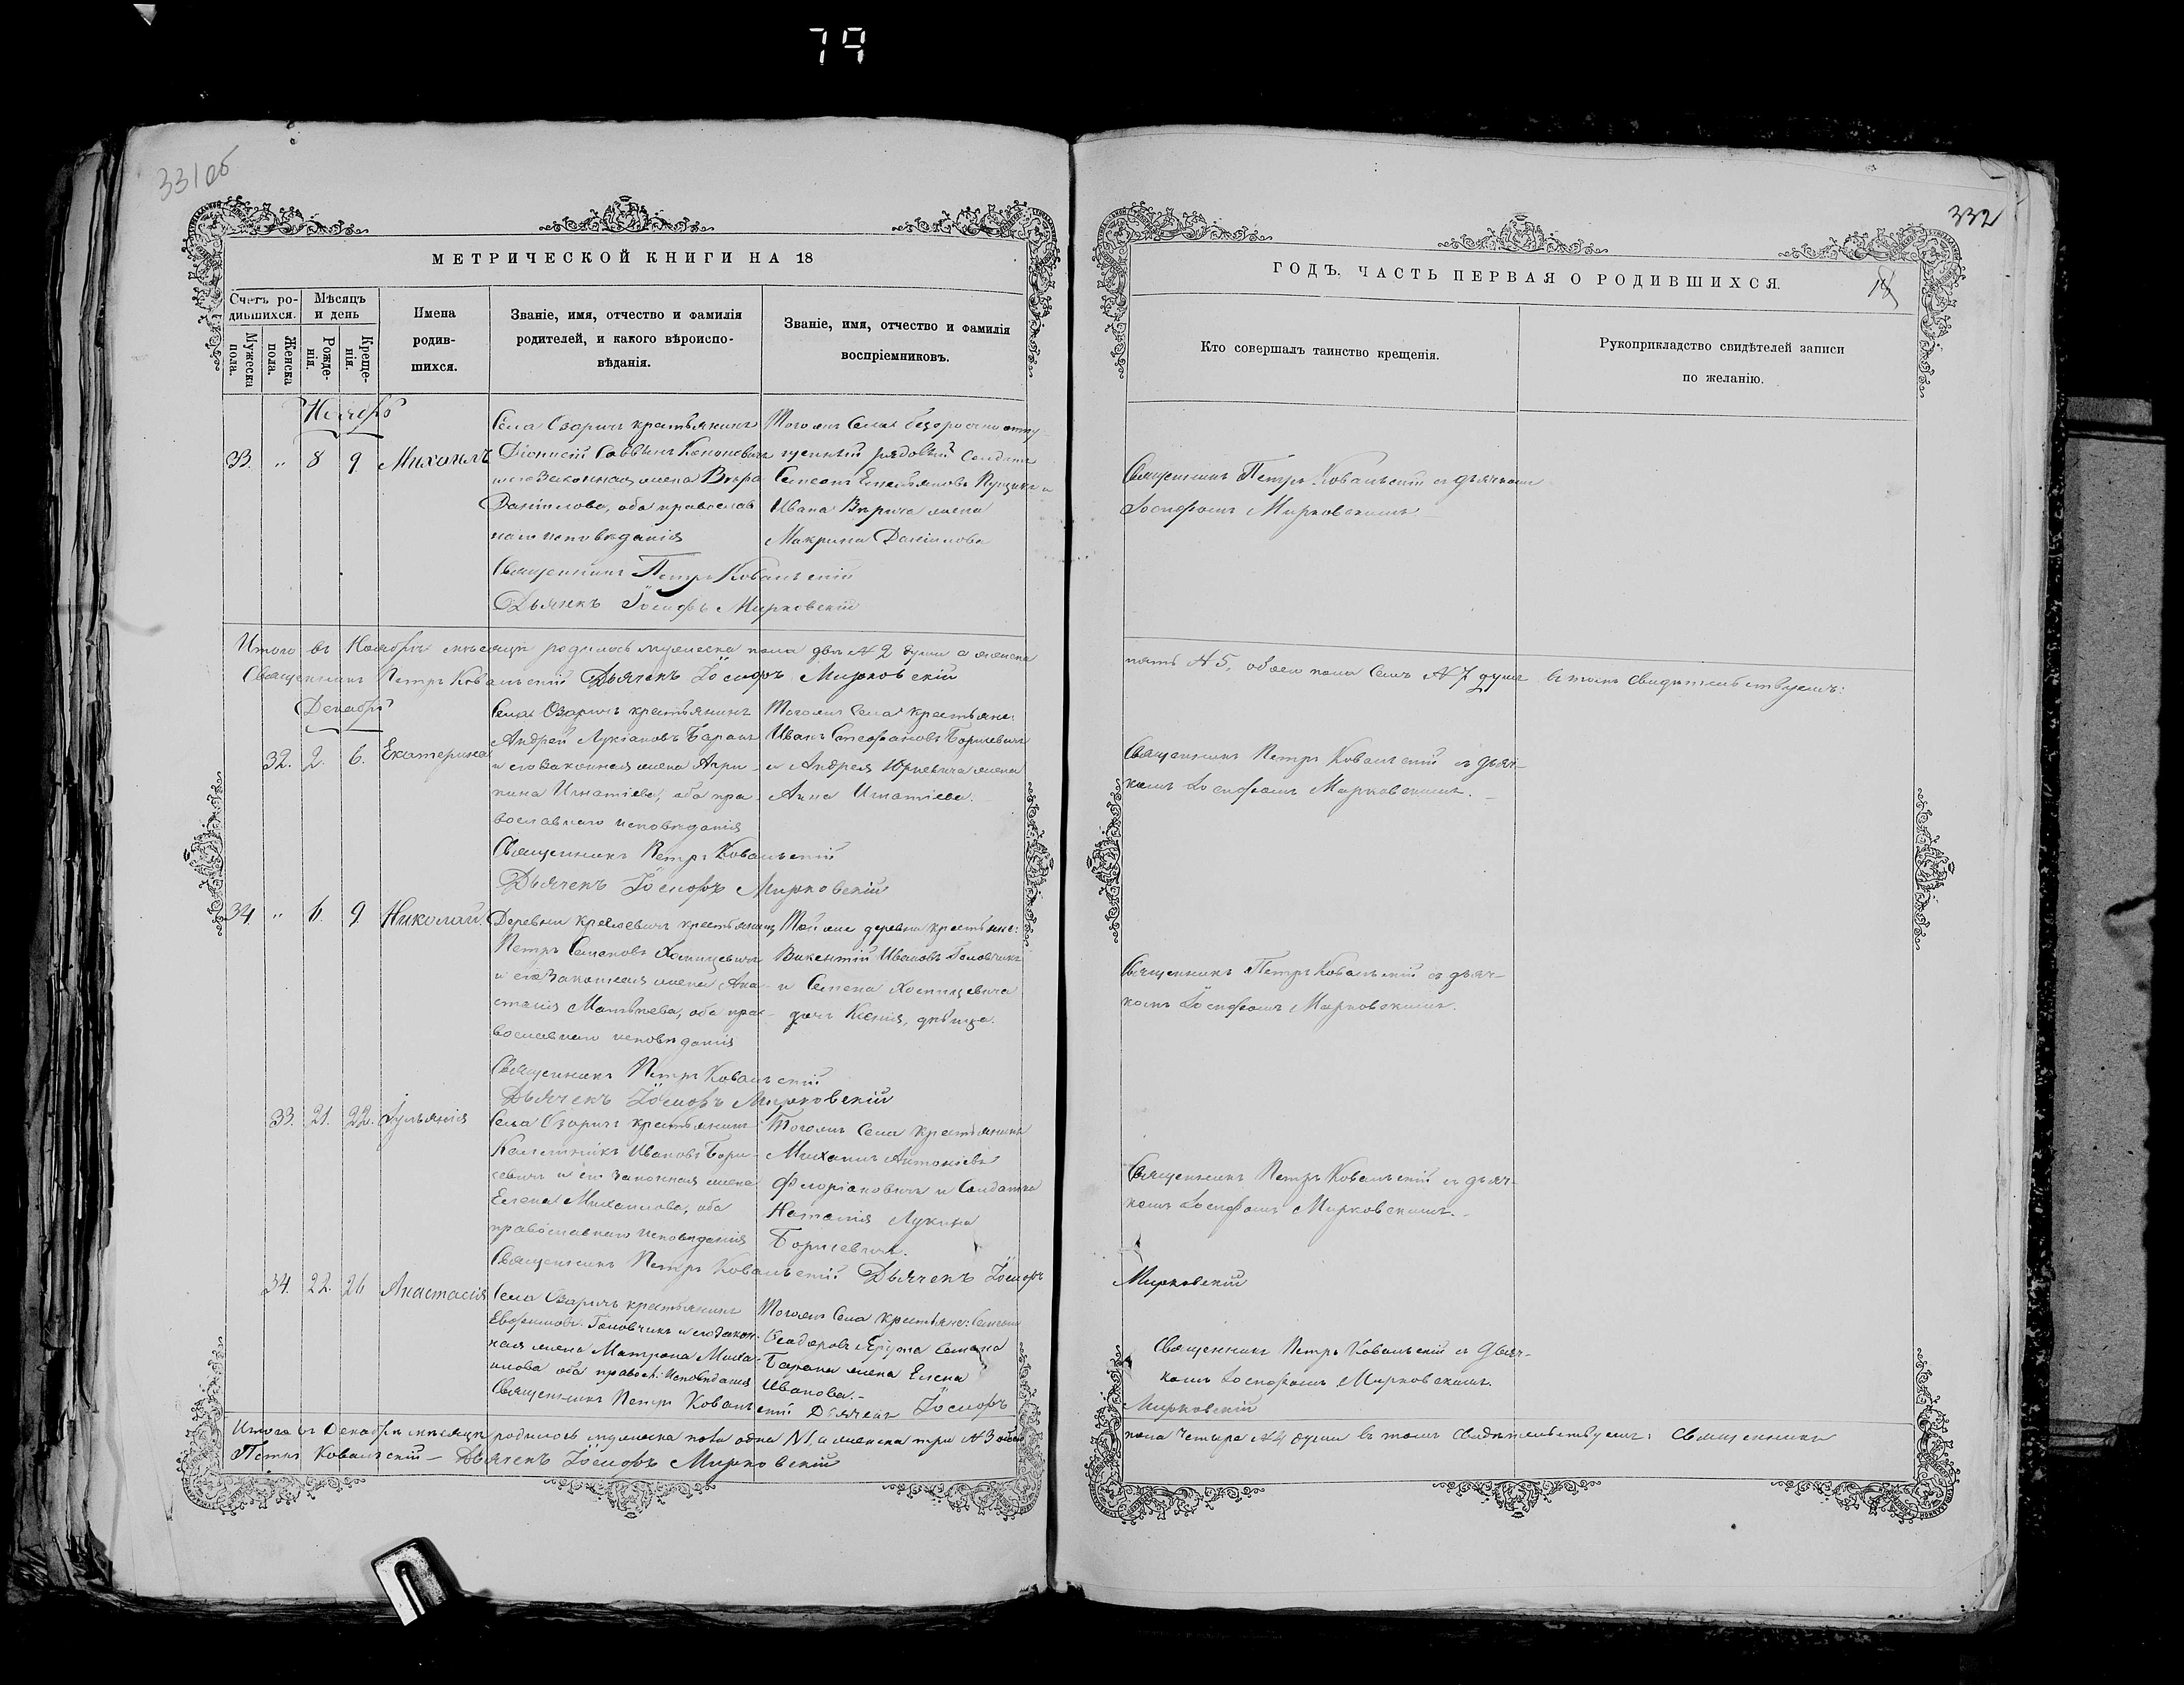 79
331об
332
МЕТРИЧЕСКОЙ КНИГИ НА 18
Счетъ ро-
дившихся.
Мужеска
пола.
Женска
пола.
Мѣсяцъ
и день
Рожде-
нія.
Креще-
нія.
Имена
родив-
шихся.
Званіе, имя, отчество и фамилія
родителей, и какого вѣроиспо-
вѣданія.
Званіе, имя, отчество и фамилія
воспріемниковъ.
33. " 8 9 Михаилъ
Села Озаричъ крестьянинъ
Діонисій Саввинъ Кононовичъ
и его законная жена Вѣра
Даніилова, оба православ
наго исповѣданія
Тогожъ Села безсрочно отпу
щенный рядовый Солдатъ
Ивана жена
Макрина Даніилова
Священникъ Петръ Ковальскій
Дьячекъ Іосифъ Мирковскій
Итого въ Ноябрѣ мѣсяцѣ родилось мужеска пола двѣ № 2 души а женска
Священникъ Петръ Ковальскій Дьячекъ Іосифъ Мирковскій
Декабрь
32. 2. 6. Екатерина
Села Озаричъ крестьянинъ
Андрей Лукіановъ Баранъ
и его законная жена Агри-
пина Игнатіева, оба пра-
вославнаго исповѣданія
Тогожъ Села крестьяне:
Иванъ Стефановъ Борисевичъ
и Андрея Юрцевича жена
Анна Игнатіева.
Священникъ Петръ Ковальскій
Дьячекъ Іосифъ Мирковскій
34 " 6. 9 Николай
Деревни крестьянинъ
Петръ Семеновъ Хомицевичъ
и его законная жена Ана-
стасія Матѣева, оба пра-
вославнаго исповѣданія
Той же деревни крестьяне:
Викентій Ивановъ Головчикъ
и Семена Хомицевича
дочь Ксенія, дѣвица.
Священникъ Петръ Ковальскій
Дьячекъ Іосифъ Мирковскій
33. 21. 22. Іульянія
Села Озаричъ крестьянинъ
Каленникъ Ивановъ Бори-
севичъ и его законная жена
Елена Михаилова, оба
православнаго исповѣданія
Тогожъ Села крестьянинъ
Михаилъ Антоніевъ
Флоріановичъ и Солдатка
Наталія Лукина
Борисевичъ.
Священникъ Петръ Ковальскій Дьячекъ Іосифъ
34. 22. 26 Анастасія
Села Озаричъ крестьянинъ
Евфимовъ Головчикъ и его закон-
ная жена Матрона Миха-
илова оба правосл: исповѣданія
Тогожъ Села крестьяне:
Феодоровъ Семена
Барана жена Елена
Иванова.-
Священникъ Петръ Ковальскій Дьячекъ Іосифъ
Итого въ Декабрѣ мѣсяцѣ родилось мужеска пола одна №1, а женска три №3 обоего
Петръ Ковальскій - Дьячекъ Іосифъ Мирковскій
ГОДЪ, ЧАСТЬ ПЕРВАЯ О РОДИВШИХСЯ.
Кто совершалъ таинство крещенія.
Рукоприкладство свидѣтелей записи
по желанію.
Священникъ Петръ Ковальскій съ дьячкомъ
Іосифомъ Мирковскимъ.
пять № 5, обоего пола семь № 7 душъ въ томъ свидѣтельствуемъ:
Священникъ Петръ Ковальскій съ дьяч-
комъ Іосифомъ Мирковскимъ.
Священникъ Петръ Ковальскій съ дьяч-
комъ Іосифомъ Мирковскимъ.
Священникъ Петръ Ковальскій съ дьяч-
комъ Іосифомъ Мирковскимъ.
Мирковскій
Священникъ Петръ Ковальскій съ дьяч-
комъ Іосифомъ Мирковскимъ.
Мирковскій
пола четыре №4 души въ томъ свидѣтельствуемъ: Священникъ